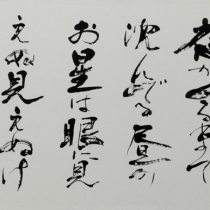 夜がくるまで
沈んでる昼の
お星は眼に見
えぬ見えぬけ